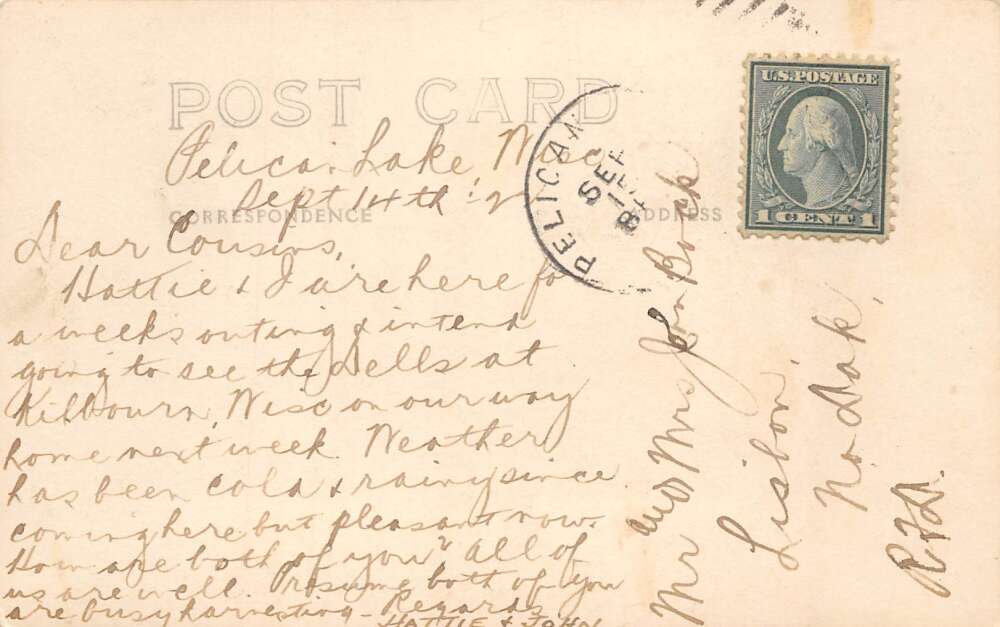 POST CARD
Pelican Lake, Wisc,
Sept 14th '2
CORRESPONDENCE
ADDRESS
Dear Cousins,
Hattie & I are here for
a weeks outing & intend
going to see the Dells at
Kilbourn, Wisc on our way
home next week. Weather
has been cold & rainy since
coming here but pleasant now.
How are both of you? All of
us are well. Presume both of you
are busy harvesting - Regards
HATTIE & JOHN
PELICAN
SEP
U.S. POSTAGE
1 CENT 1
Mr and Mrs John Bock
Lisbon,
No. Dak,
R.F.D.